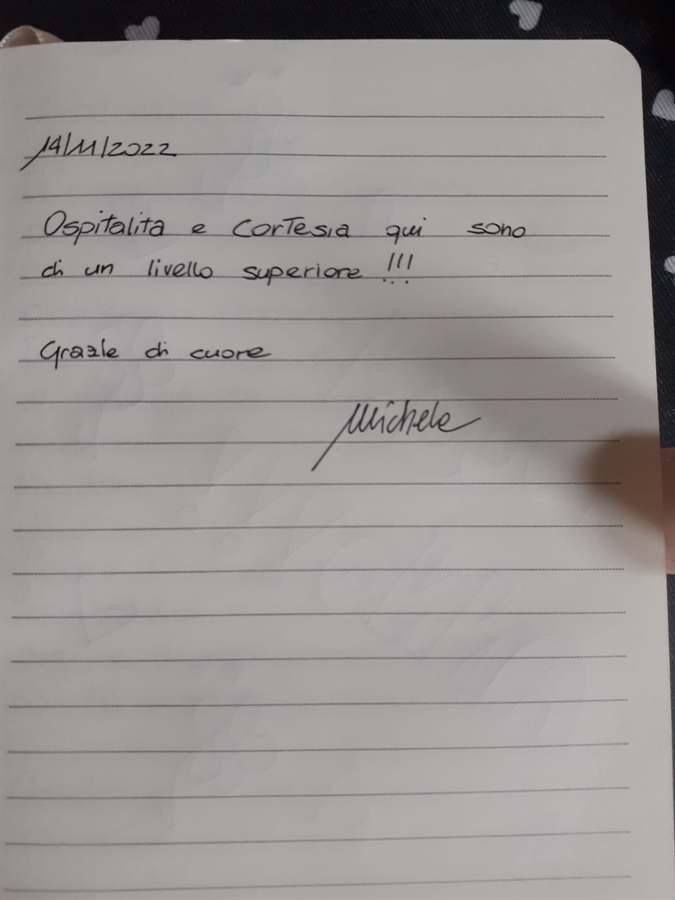 14/11/2022
Ospitalita e cortesia qui sono
di un livello superiore !!!
Grazie di cuore
Michele